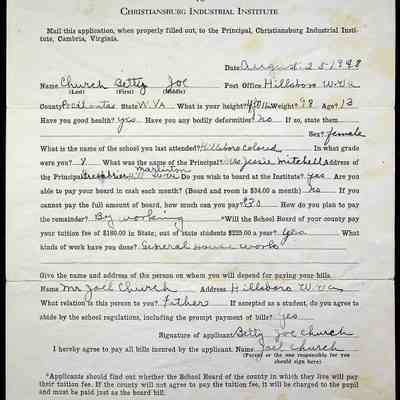 TO
CHRISTIANSBURG INDUSTRIAL INSTITUTE
Mail this application, when properly filled out, to the Principal, Christiansburg Industrial Insti-
tute, Cambria, Virginia.
Date August 25 1948
Name Church Betty Joe Post Office Hillsboro W.Va
(Last) (First) (Middle)
County Pocahontas State W.VA What is your height? Weight? 98 Age? 13
Have you good health? yes Have you any bodily deformities? no If so, state them
Sex? female
What is the name of the school you last attended? Hillsboro Colored In what grade
were you? 8 What was the name of the Principal? Jessie Mitchell Address of
Marlinton
the Principal Do you wish to board at the Institute? yes Are you
able to pay your board in cash each month? (Board and room is $34.00 a month) no If you
cannot pay the full amount of board, how much can you pay? $30 How do you plan to
pay the remainder? By working *Will the School Board of your county pay
your tuition fee of $180.00 in State; out of state students $225.00 a year? yes What
kinds of work have you done? General House work
Give the name and address of the person on whom you will depend for paying your bills.
Name Mr Joel Church Address Hillsboro W.Va
What relation is this person to you? Father If accepted as a student, do you agree to
abide by the school regulations, including the prompt payment of bills? yes
Signature of applicant Betty Joe Church
I hereby agree to pay all bills incurred by the applicant. Name Joel Church
(Parent or the one responsible for you
should sign here)
*Applicants should find out whether the School Board of the county in which they live will pay
their tuition fee. If the county will not agree to pay the tuition fee, it will be charged to the pupil
and must be paid just as the board bill.